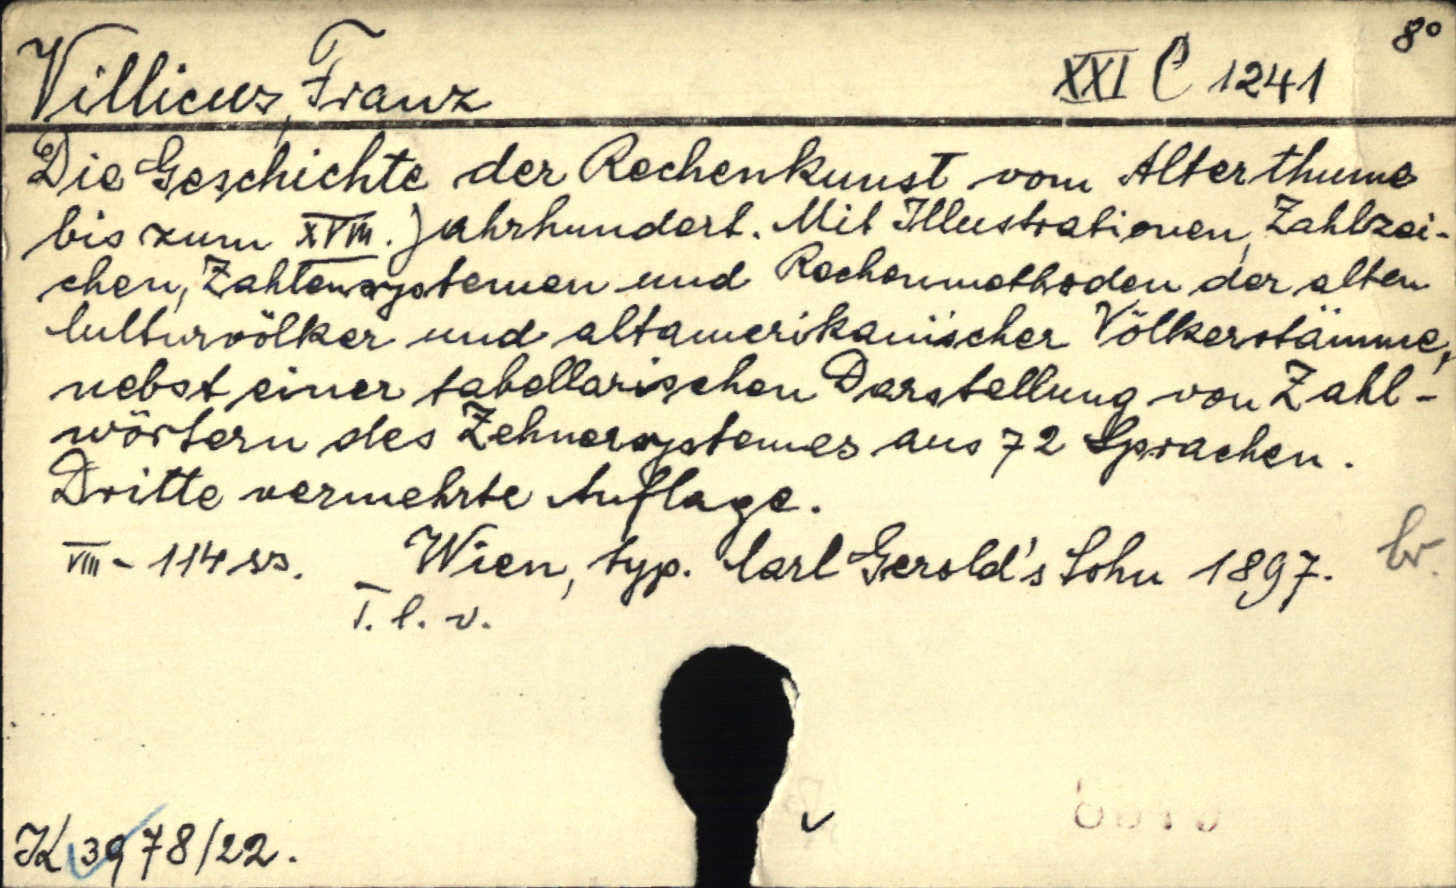 8°
Villicus, Franz XXI C 1241
Die Geschichte der Rechenkunst vom Alterthume
bis zum XVIII. Jahrhundert. Mit Illustrationen, Zahlzei-
chen, Zahlensystemen und Rechenmethoden der alten
Culturvölker und altamerikanischer Völkerstämme,
nebst einer tabellarischen Darstellung von Zahl-
wörtern des Zehnersystemes aus 72 Sprachen.
Dritte vermehrte Auflage.
VIII - 114 ss. Wien, typ. Carl Gerold's Sohn 1897. br.
T. l. v.
K 3978/22.